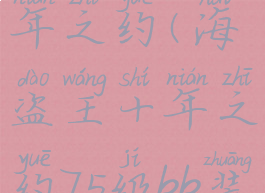 nián zhī yuē hǎi
年之约(海
dào wáng shí nián zhī
盗王十年之
yuē jí zhuāng
约75级bb装